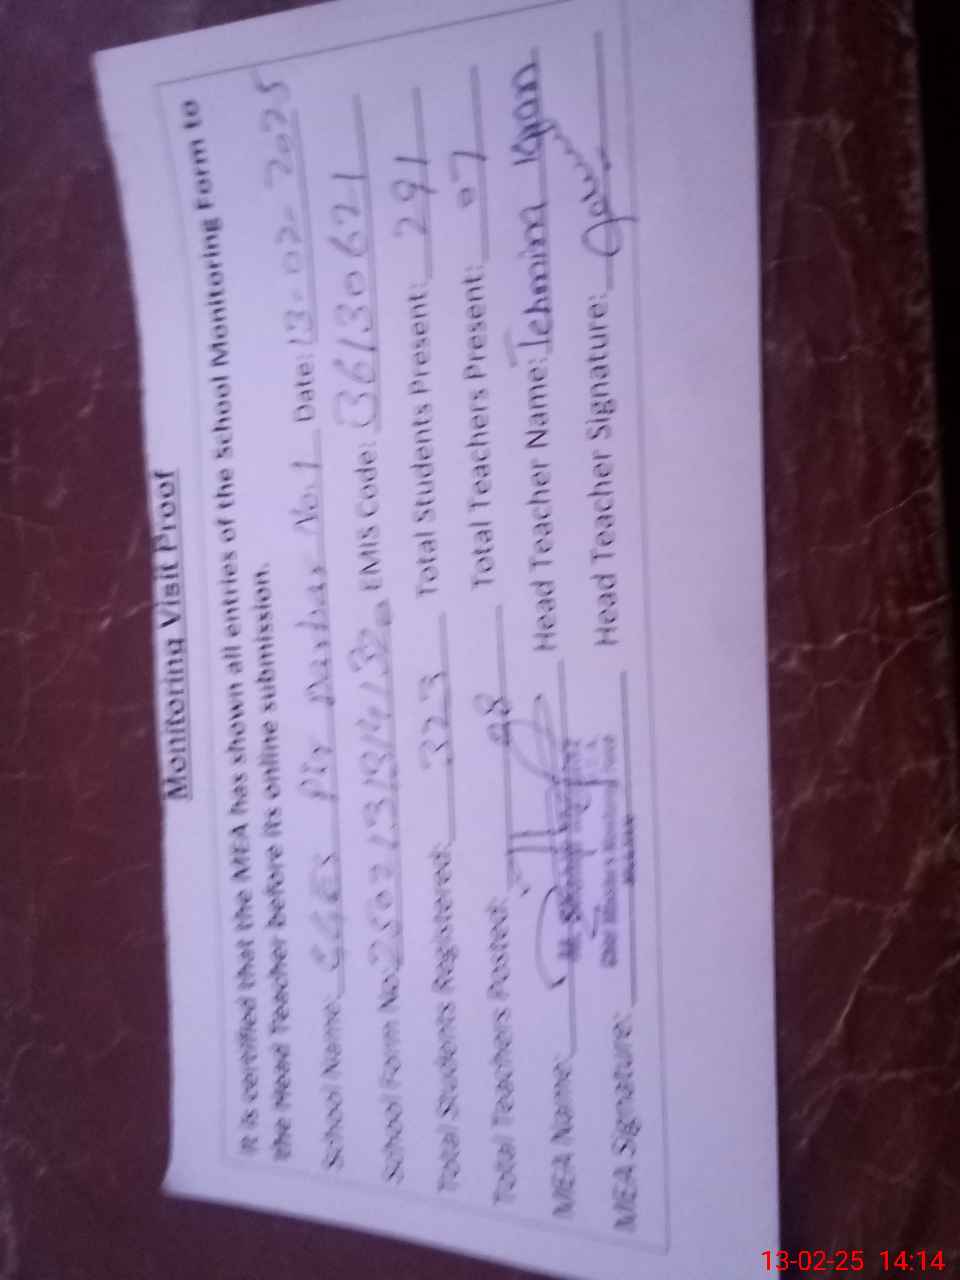 Monitoring Visit Proof
It is certified that the MEA has shown all entries of the School Monitoring Form to
the Head Teacher before its online submission.
School Name: GGES Pir No.1 Date: 13-02-2025
School Form No: EMIS Code: 36130621
Total Students Registered: 323 Total Students Present: 291
Total Teachers Posted: 08 Total Teachers Present: 07
MEA Name: Head Teacher Name: Tehmina Khan
MEA Signature: Head Teacher Signature:
13-02-25 14:14